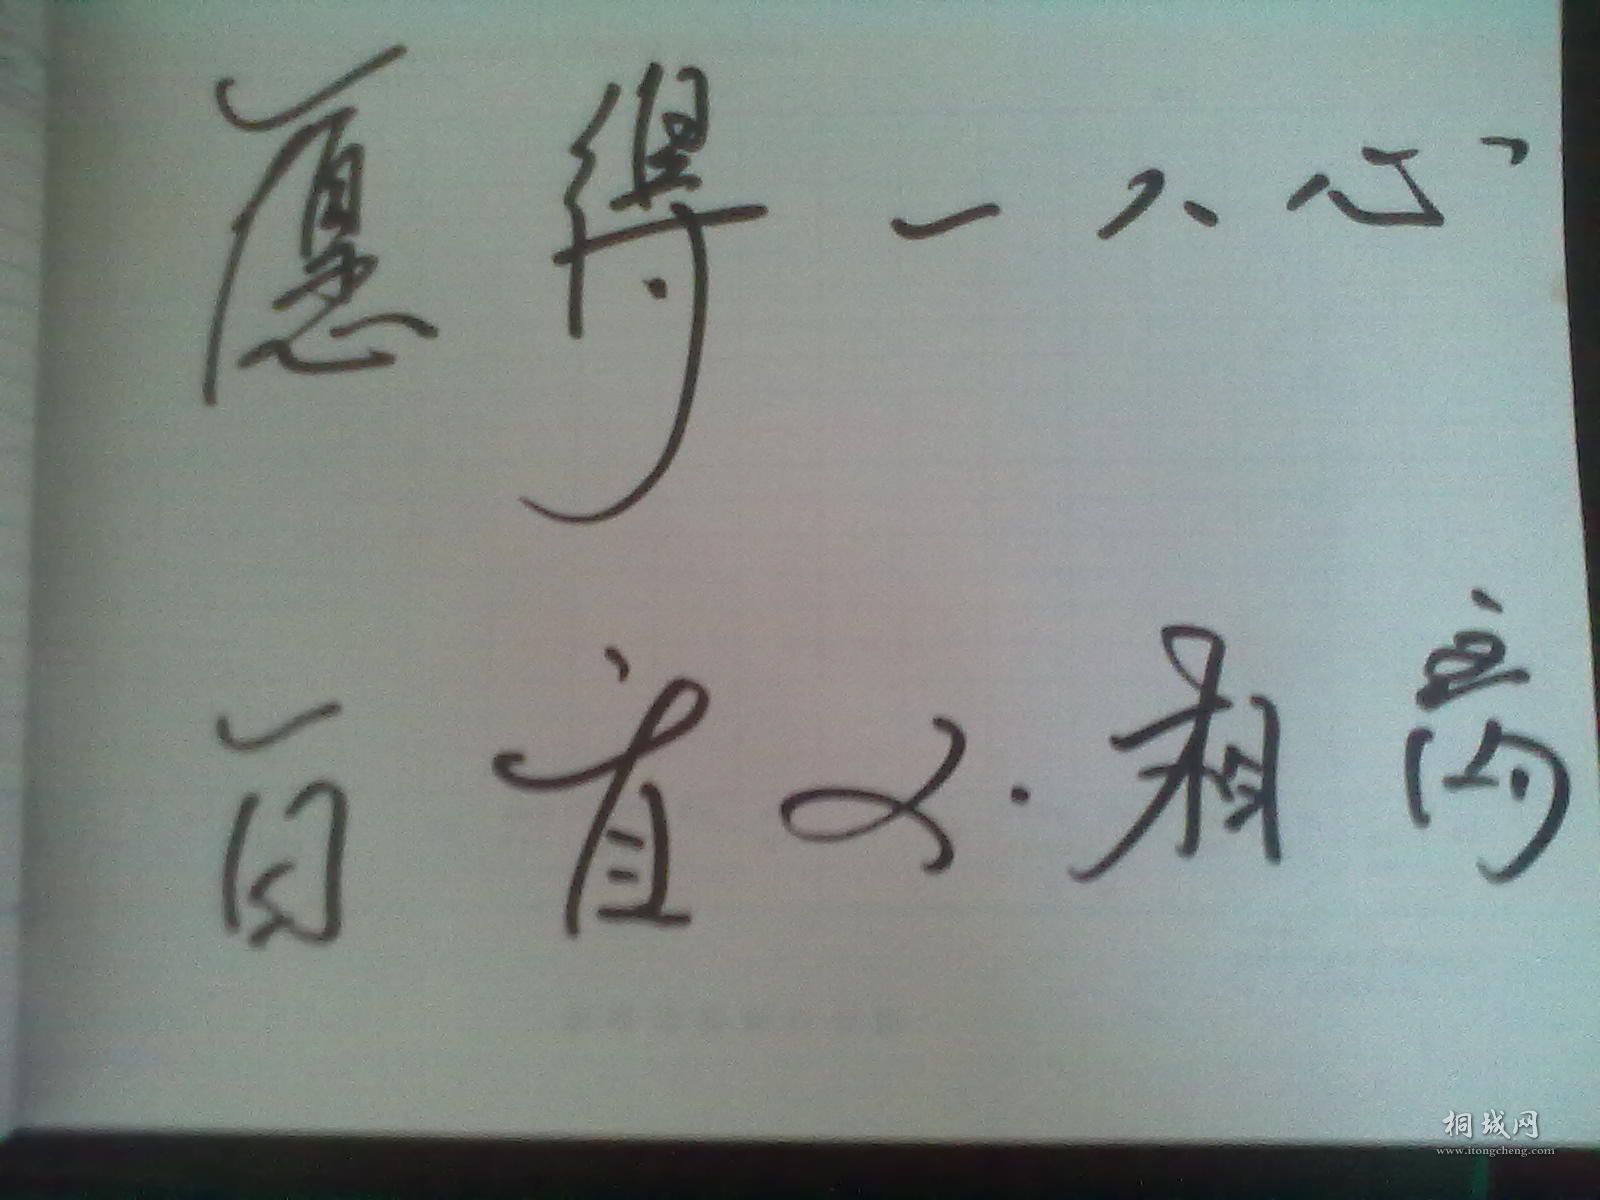 愿得一人心
百首不相离
桐城网
www.itongcheng.com